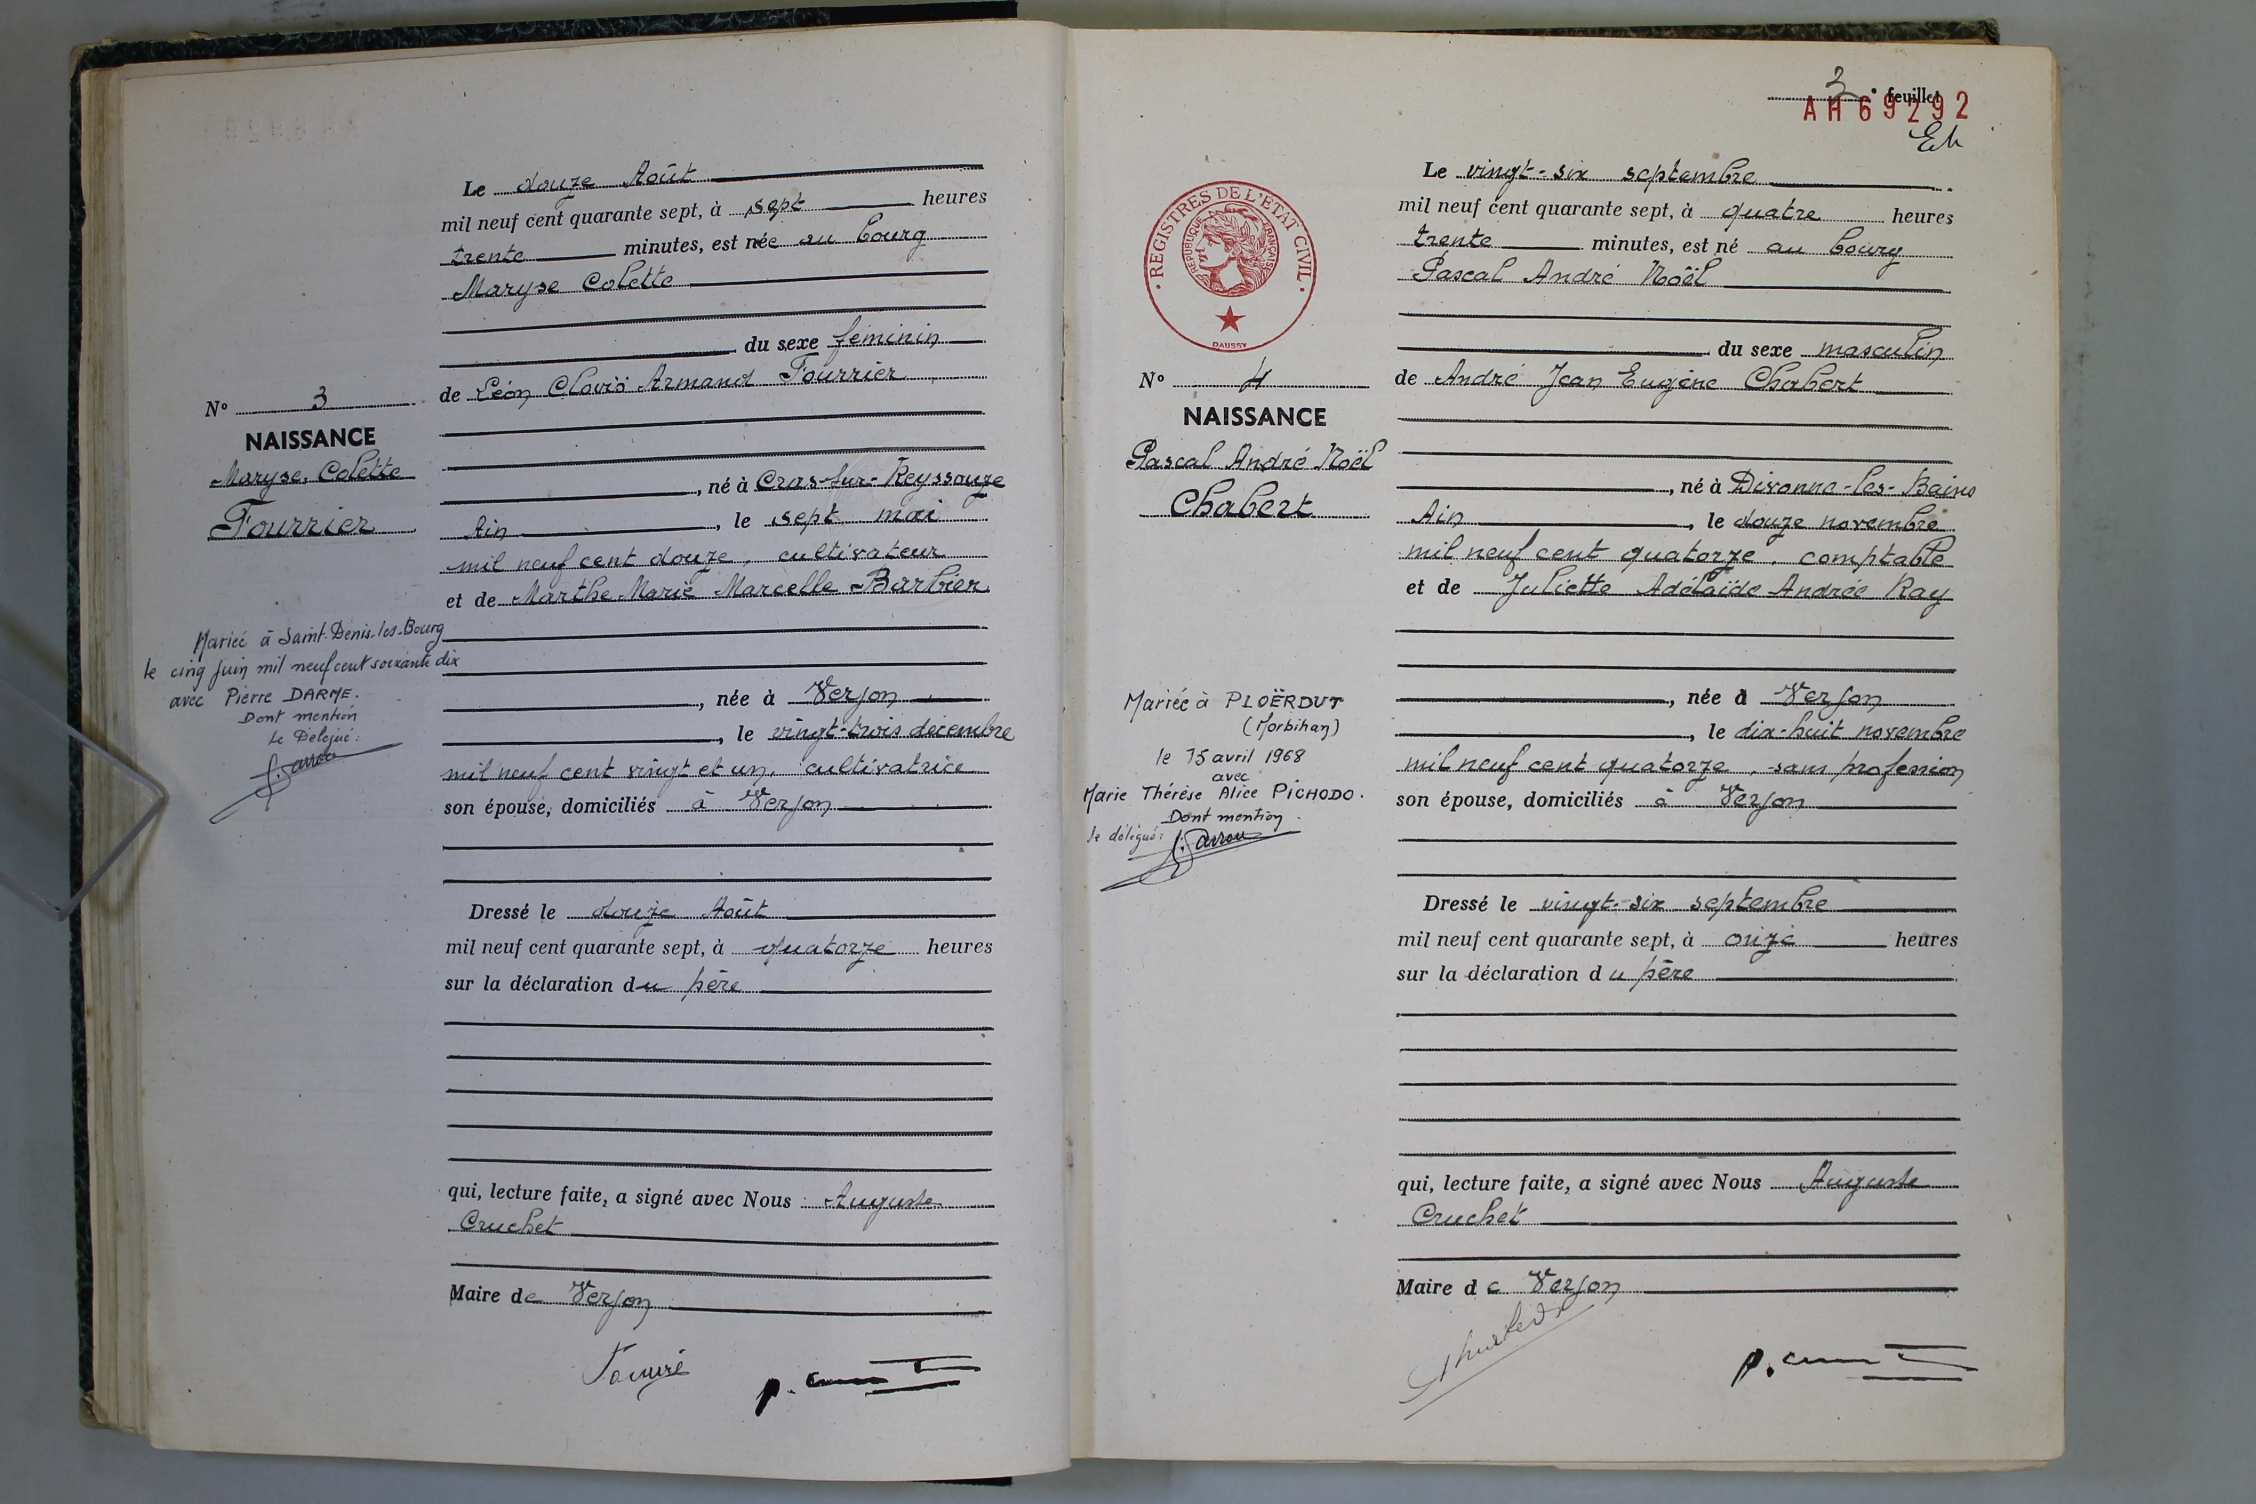 Le douze Août
mil neuf cent quarante sept, à sept heures
trente minutes, est née au bourg
Maryse Colette
du sexe féminin
N° 3
de Léon Clovis Armand Fourrier
NAISSANCE
Maryse, Colette
Fourrier
, né à Cras-sur-Reyssouze
Ain, le sept mai
mil neuf cent douze, cultivateur
et de Marthe Marie Marcelle Barbier
Mariée à Saint-Denis-les-Bourg
le cinq juin mil neuf cent soixante dix
avec Pierre DARME.
Dont mention
Le Délégué:
, née à Verjon
, le vingt-trois décembre
mil neuf cent vingt et un, cultivatrice
son épouse, domiciliés à Verjon
Dressé le douze Août
mil neuf cent quarante sept, à quatorze heures
sur la déclaration du père
qui, lecture faite, a signé avec Nous Auguste
Cruchet
Maire de Verjon
3e feuillet
AH69292
Le vingt-six septembre
mil neuf cent quarante sept, à quatre heures
trente minutes, est né au bourg
Pascal André Noël
REGISTRES DE L'ETAT CIVIL
REPUBLIQUE FRANÇAISE
DAUSSY
du sexe masculin
N° 4
de André Jean Eugène Chabert
NAISSANCE
Pascal André Noël
Chabert
, né à Divonne-les-Bains
Ain, le douze novembre
mil neuf cent quatorze, comptable
et de Juliette Adélaïde Andrée Ray
, née à Verjon
, le dix-huit novembre
mil neuf cent quatorze, sans profession
son épouse, domiciliés à Verjon
Mariée à PLOËRDUT
(Morbihan)
le 15 avril 1968
avec
Marie Thérèse Alice PICHODO.
Dont mention.
le délégué:
Dressé le vingt-six septembre
mil neuf cent quarante sept, à onze heures
sur la déclaration du père
qui, lecture faite, a signé avec Nous Auguste
Cruchet
Maire de Verjon